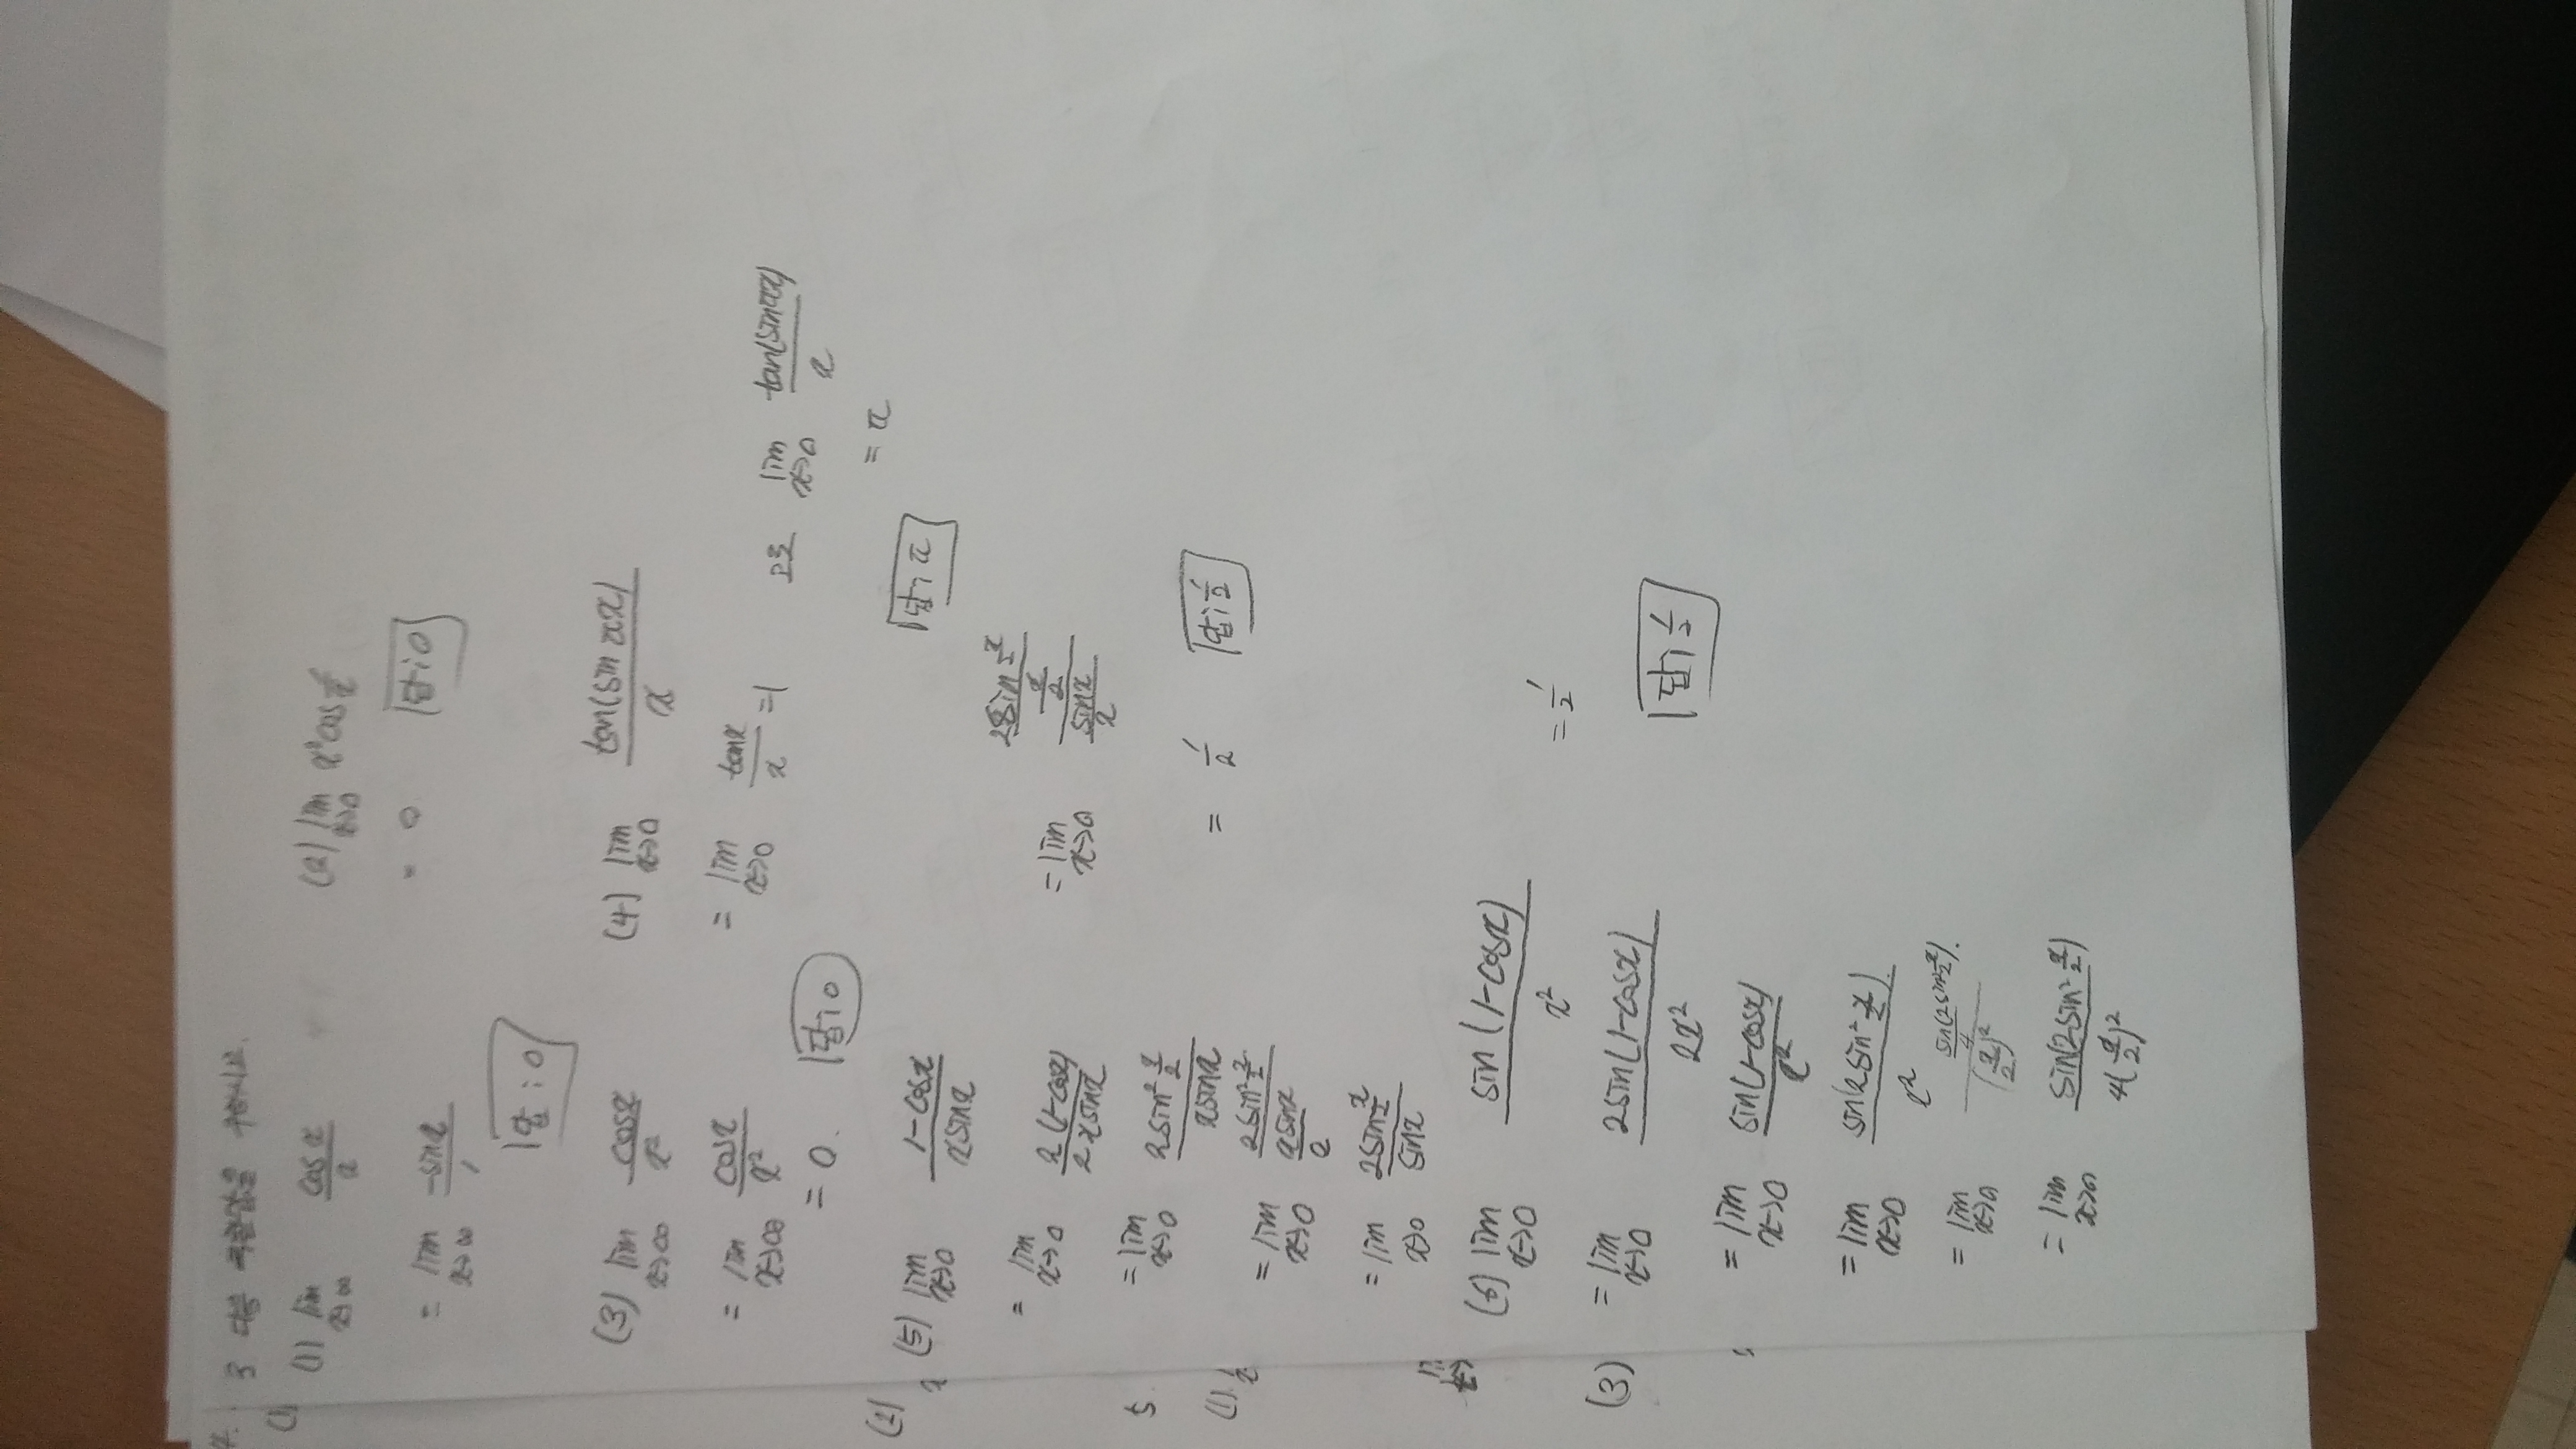 3 다음 극한값을 구하시오.
(1) lim x→∞ cos x / x
= lim x→∞ -sin x / 1
답 : 0
(2) lim x→0 x² cos 1/x
= 0 답 : 0
(3) lim x→∞ cos x / x²
= lim x→∞ cos x / x²
= 0. 답 : 0
(4) lim x→0 tan(sin πx) / x
= lim x→0 tan x / x = 1 lim x→0 tan(sin πx) / x
= π
답 : π
(5) lim x→0 1-cos x / x sin x
= lim x→0 2(1-cos x) / 2x sin x
= lim x→0 2sin² x/2 / x sin x
= lim x→0 2sin² x/2 / x sin x / 2
= lim x→0 2sin x/2 / sin x
= lim x→0 2sin x/2 / x/2 / sin x / x
= 1/2 답 : 1/2
(6) lim x→0 sin(1-cos x) / x²
= lim x→0 2sin(1-cos x) / 2x²
= lim x→0 sin(1-cos x) / x²
= lim x→0 sin(2sin² x/2) / x²
= lim x→0 sin(2sin² x/2) / 4 / (x/2)²
= lim x→0 sin(2sin² x/2) / 4(x/2)²
= 1/2
답 : 1/2
4.
(1)
(2)
x
5.
(1)
(3)